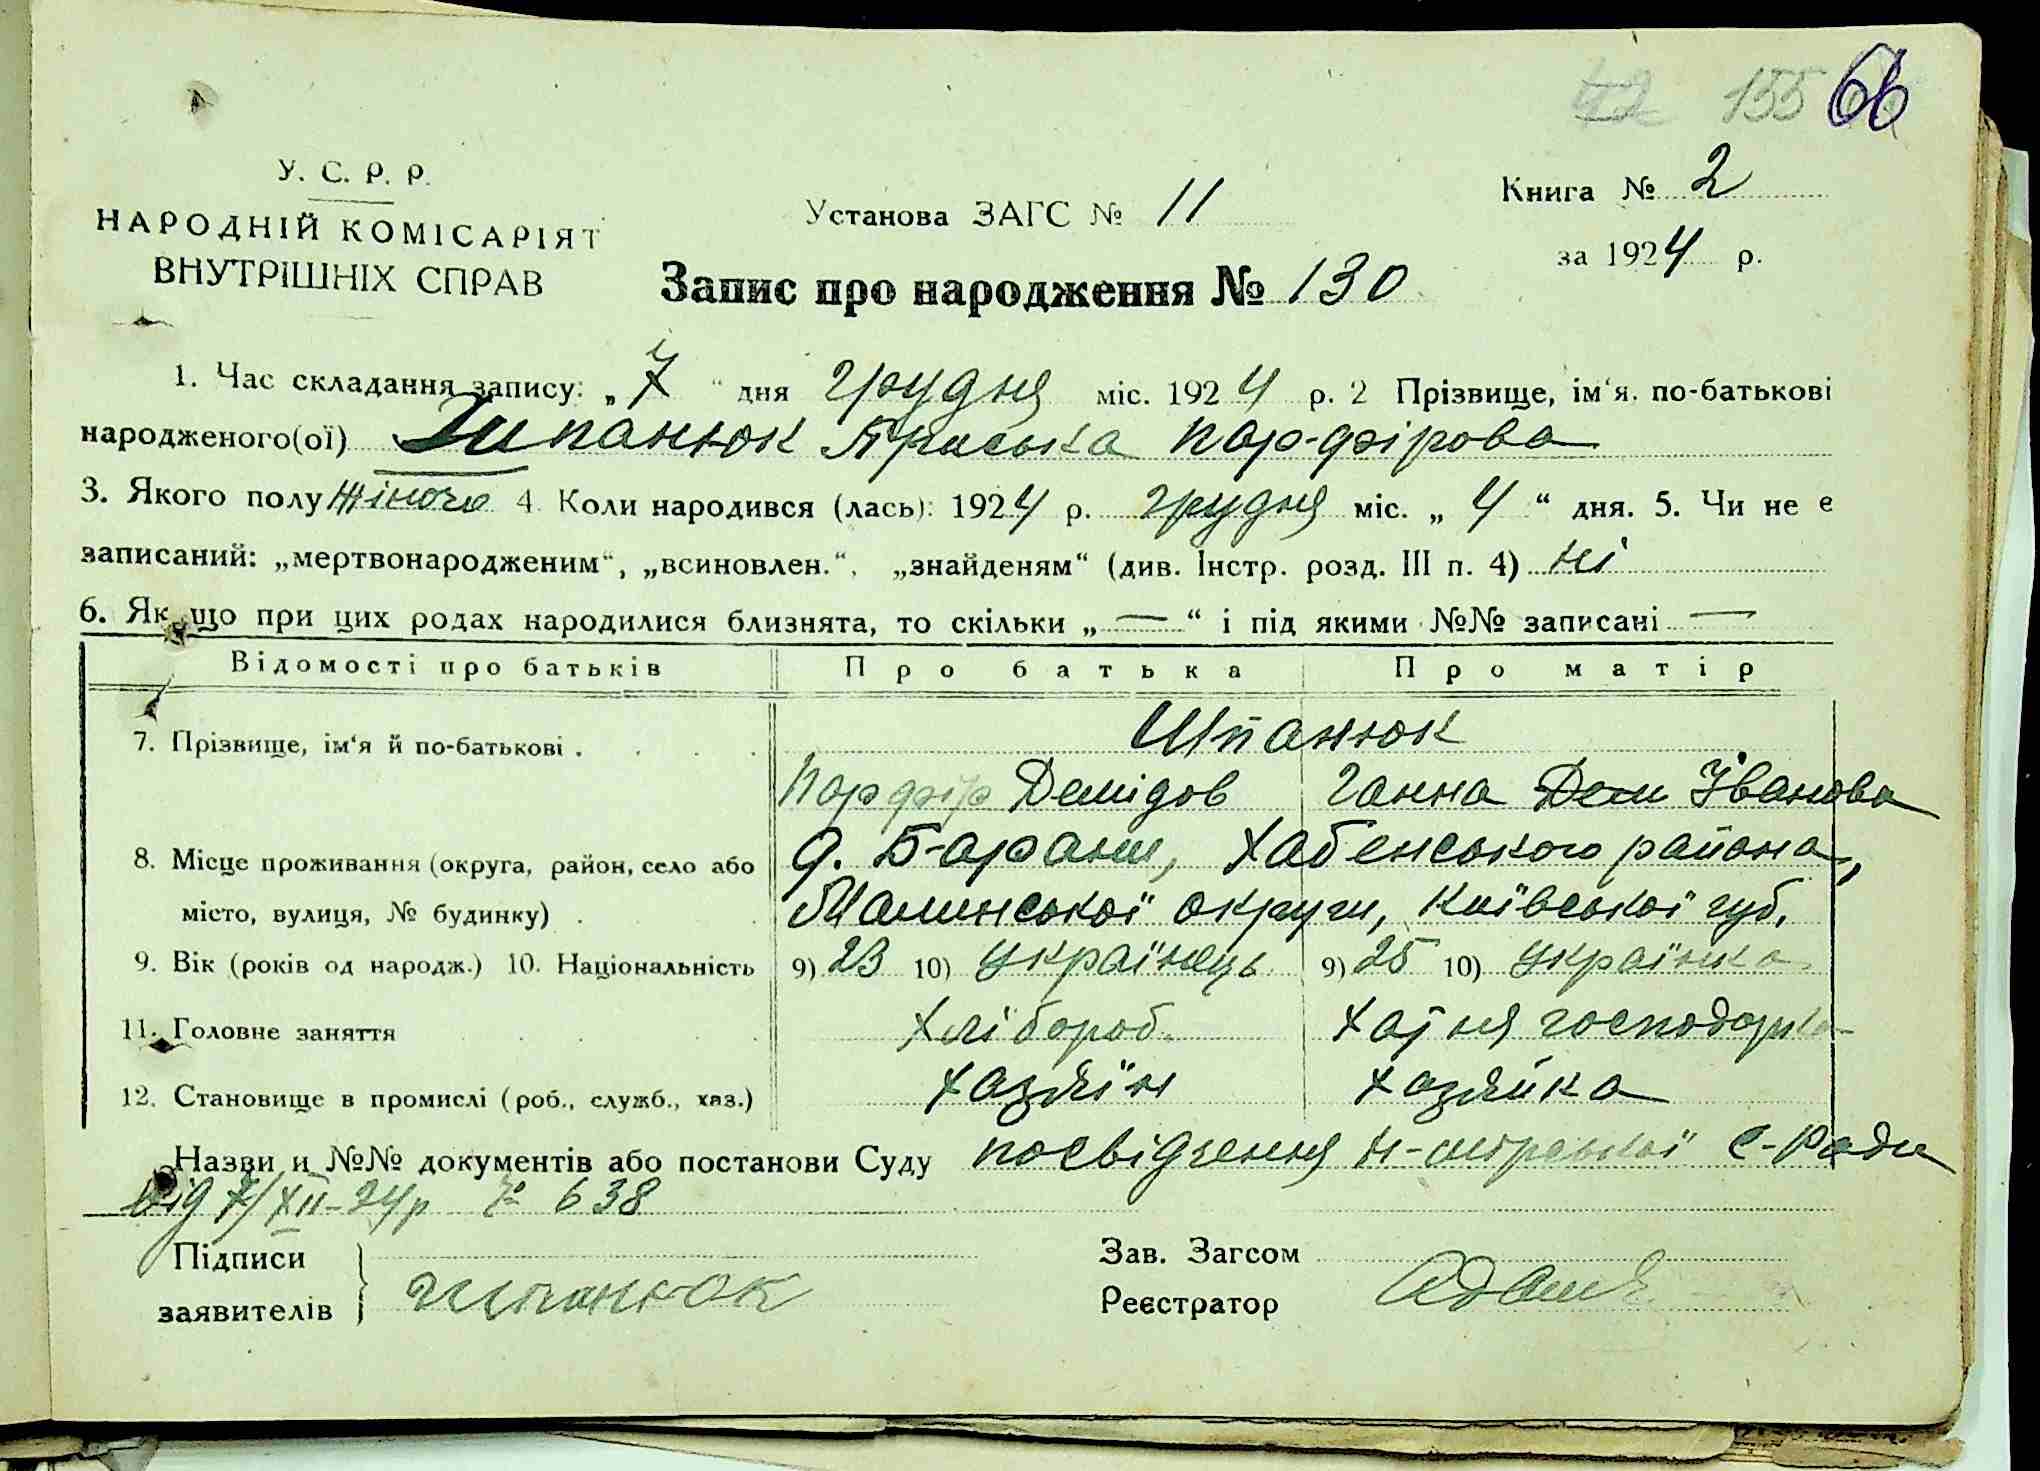 42 155 66
У. С. Р. Р.
НАРОДНІЙ КОМІСАРІЯТ
ВНУТРІШНІХ СПРАВ
Установа ЗАГС № 11
Книга № 2
за 1924 р.
Запис про народження № 130
1. Час складання запису: „7“ дня грудня міс. 1924 р. 2 Прізвище, ім‘я, по-батькові
народженого(ої) Шпанюк Приська Пар-фірова
3. Якого полу жіночо 4. Коли народився (лась): 1924 р. грудня міс. „4“ дня. 5. Чи не є
записаний: „мертвонародженим“, „всиновлен.“, „знайденям“ (див. Інстр. розд. III п. 4) ні
6. Якщо при цих родах народилися близнята, то скільки „—“ і під якими №№ записані —
Відомості про батьків Про батька Про матір
7. Прізвище, ім‘я й по-батькові . Шпанюк
Парфір Демідов Ганна Дем Іванова
8. Місце проживання (округа, район, село або д. Барани, Хабенського района,
місто, вулиця, № будинку) . Малинської округи, Київської губ.
9. Вік (років од народж.) 10. Національність 9) 23 10) Українець 9) 25 10) Українка
11. Головне заняття Хлібороб Хатня господарка
12. Становище в промислі (роб., служб., хаз.) Хазяїн Хазяйка
Назви и №№ документів або постанови Суду посвідчення С-Ради
від 7/XII-24р № 638
Підписи
заявителів Шпанюк
Зав. Загсом
Реєстратор